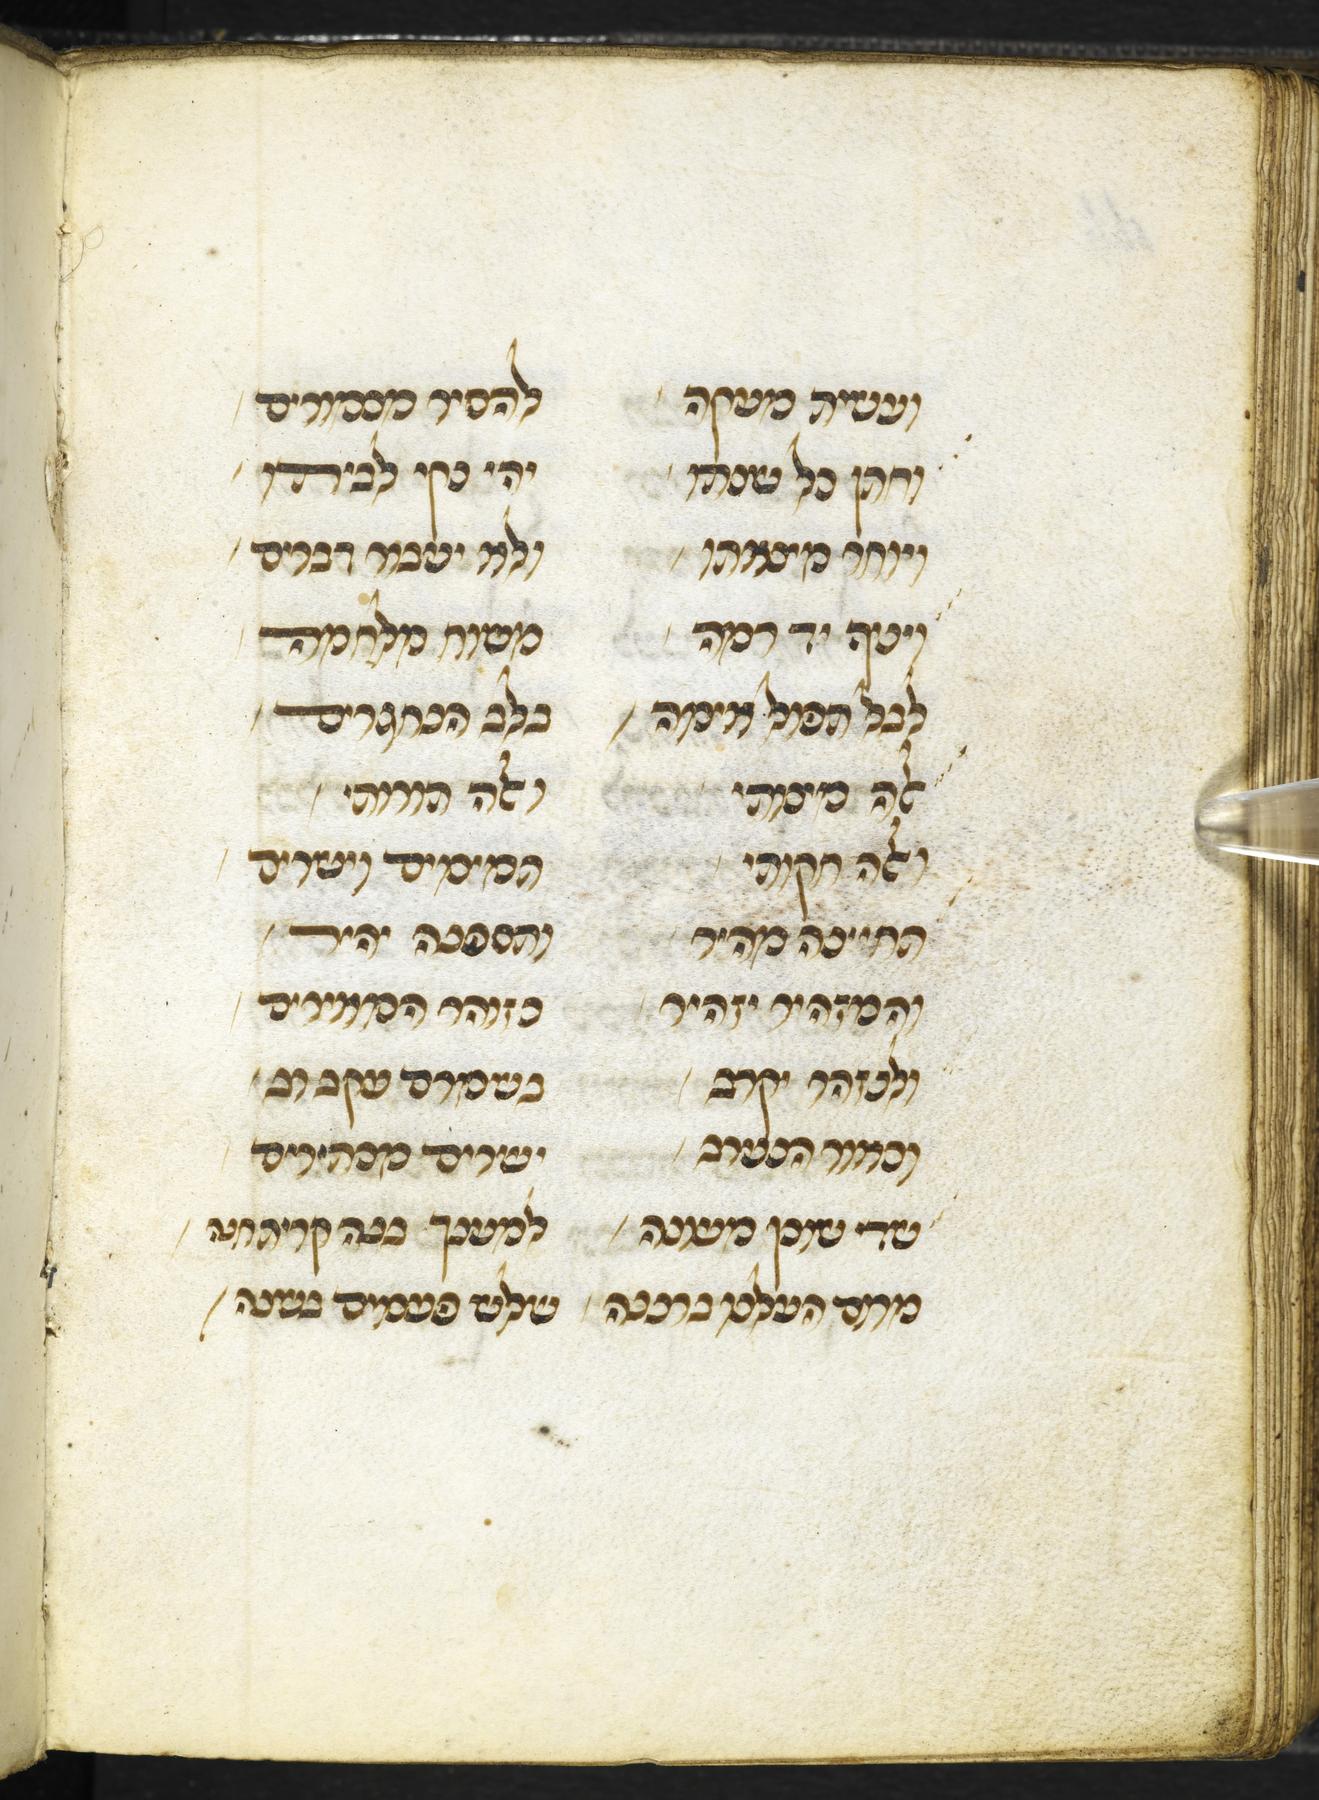 ועשית מעקה / להסיר מכמורים /
וחתן כל שנתו / יהי נקי לביתו /
ויוחר מיצאתו / ולא יעבור דברים /
ויטף יד רמה / משוח מלחמה /
לבל תפול אימה / בלב הנחגרים /
אלה מצותי / ואלה תורותי /
ואלה חקותי / תמימים וישרים /
החייבה מהיר / והספכה יהיר /
והמזהיר יזהיר / כזוהר המאירים /
ולנזהר יקרב / בשמרם עקב רב /
וכאור הנערב / ישרים מבהירים /
עד שוכן מעונה / למענך בנה קריתנו /
מרום העלם ברננה / שלש פעמים בשנה /